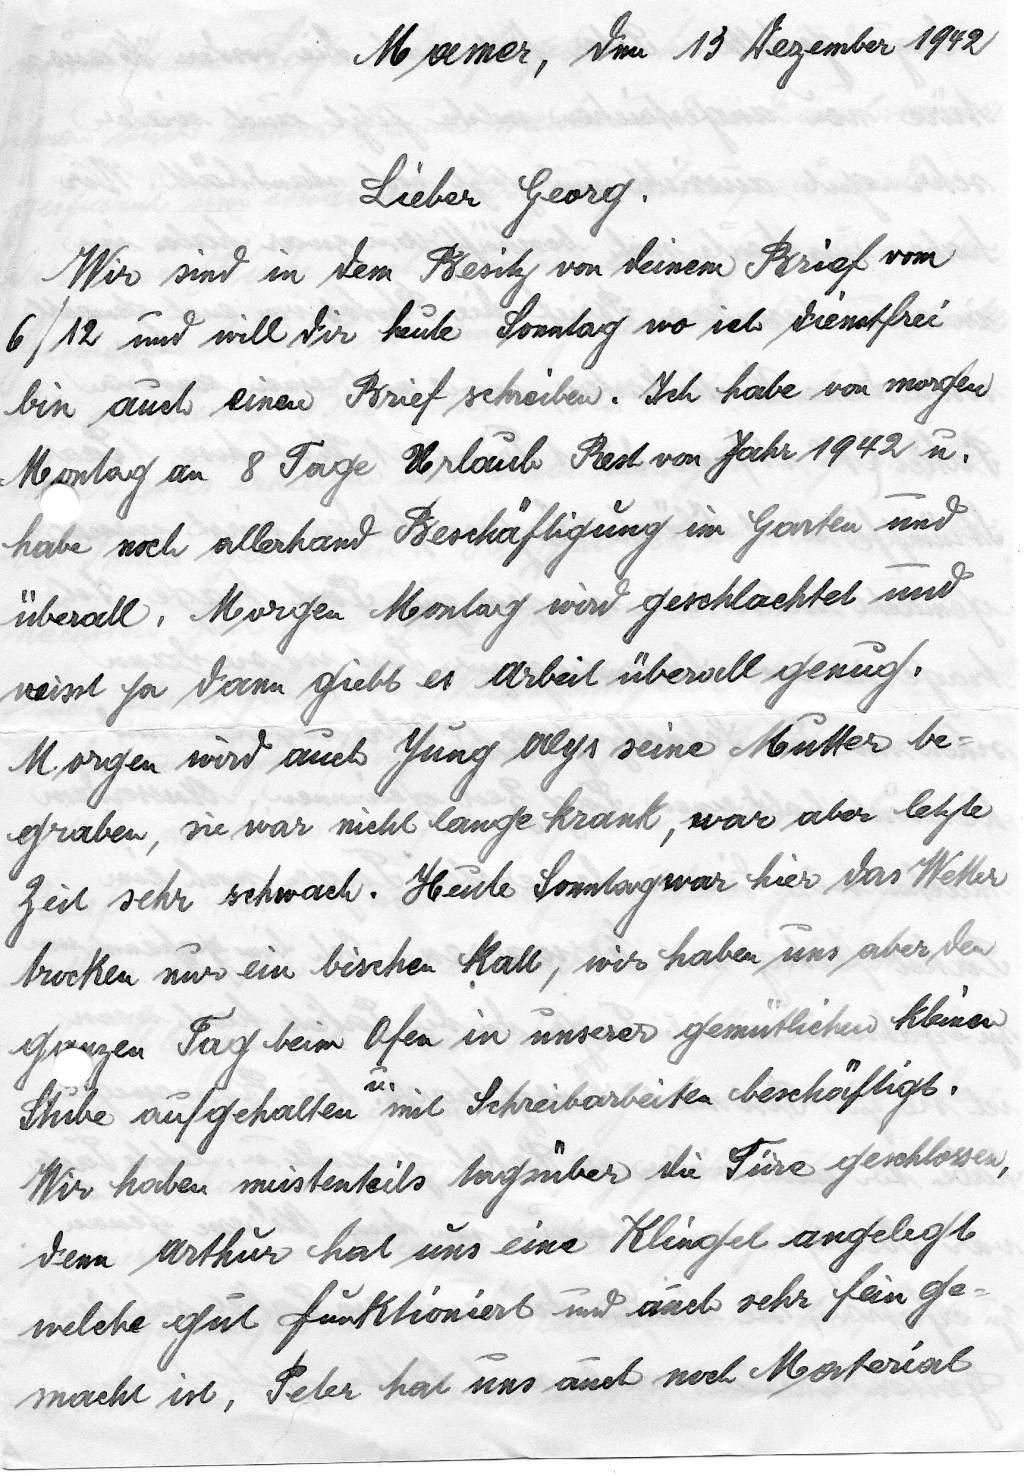 Mamer, den 13 Dezember 1942
Lieber Georg.
Wir sind in dem Besitz von deinem Brief vom
6/12 und will dir heute Sonntag wo ich dienstfrei
bin auch einen Brief schreiben. Ich habe von morgen
Montag an 8 Tage Urlaub Rest von Jahr 1942 u.
habe noch allerhand Beschäftigung im Garten und
überall. Morgen Montag wird geschlachtet und
weisst ja dann giebt es Arbeit überall genug.
Morgen wird auch Jung Alys seine Mutter be=
graben, sie war nicht lange krank, war aber letzte
Zeit sehr schwach. Heute Sonntag war hier das Wetter
trocken nur ein bischen kalt, wir haben uns aber den
ganzen Tag beim Ofen in unserer gemütlichen kleinen
Stube aufgehalten u. mit Schreibarbeiten beschäftigt.
Wir haben meistenteils tagsüber die Türe geschlossen,
denn Arthur hat uns eine Klingel angelegt
welche gut funktioniert und auch sehr fein ge=
macht ist, Peter hat uns auch noch Material